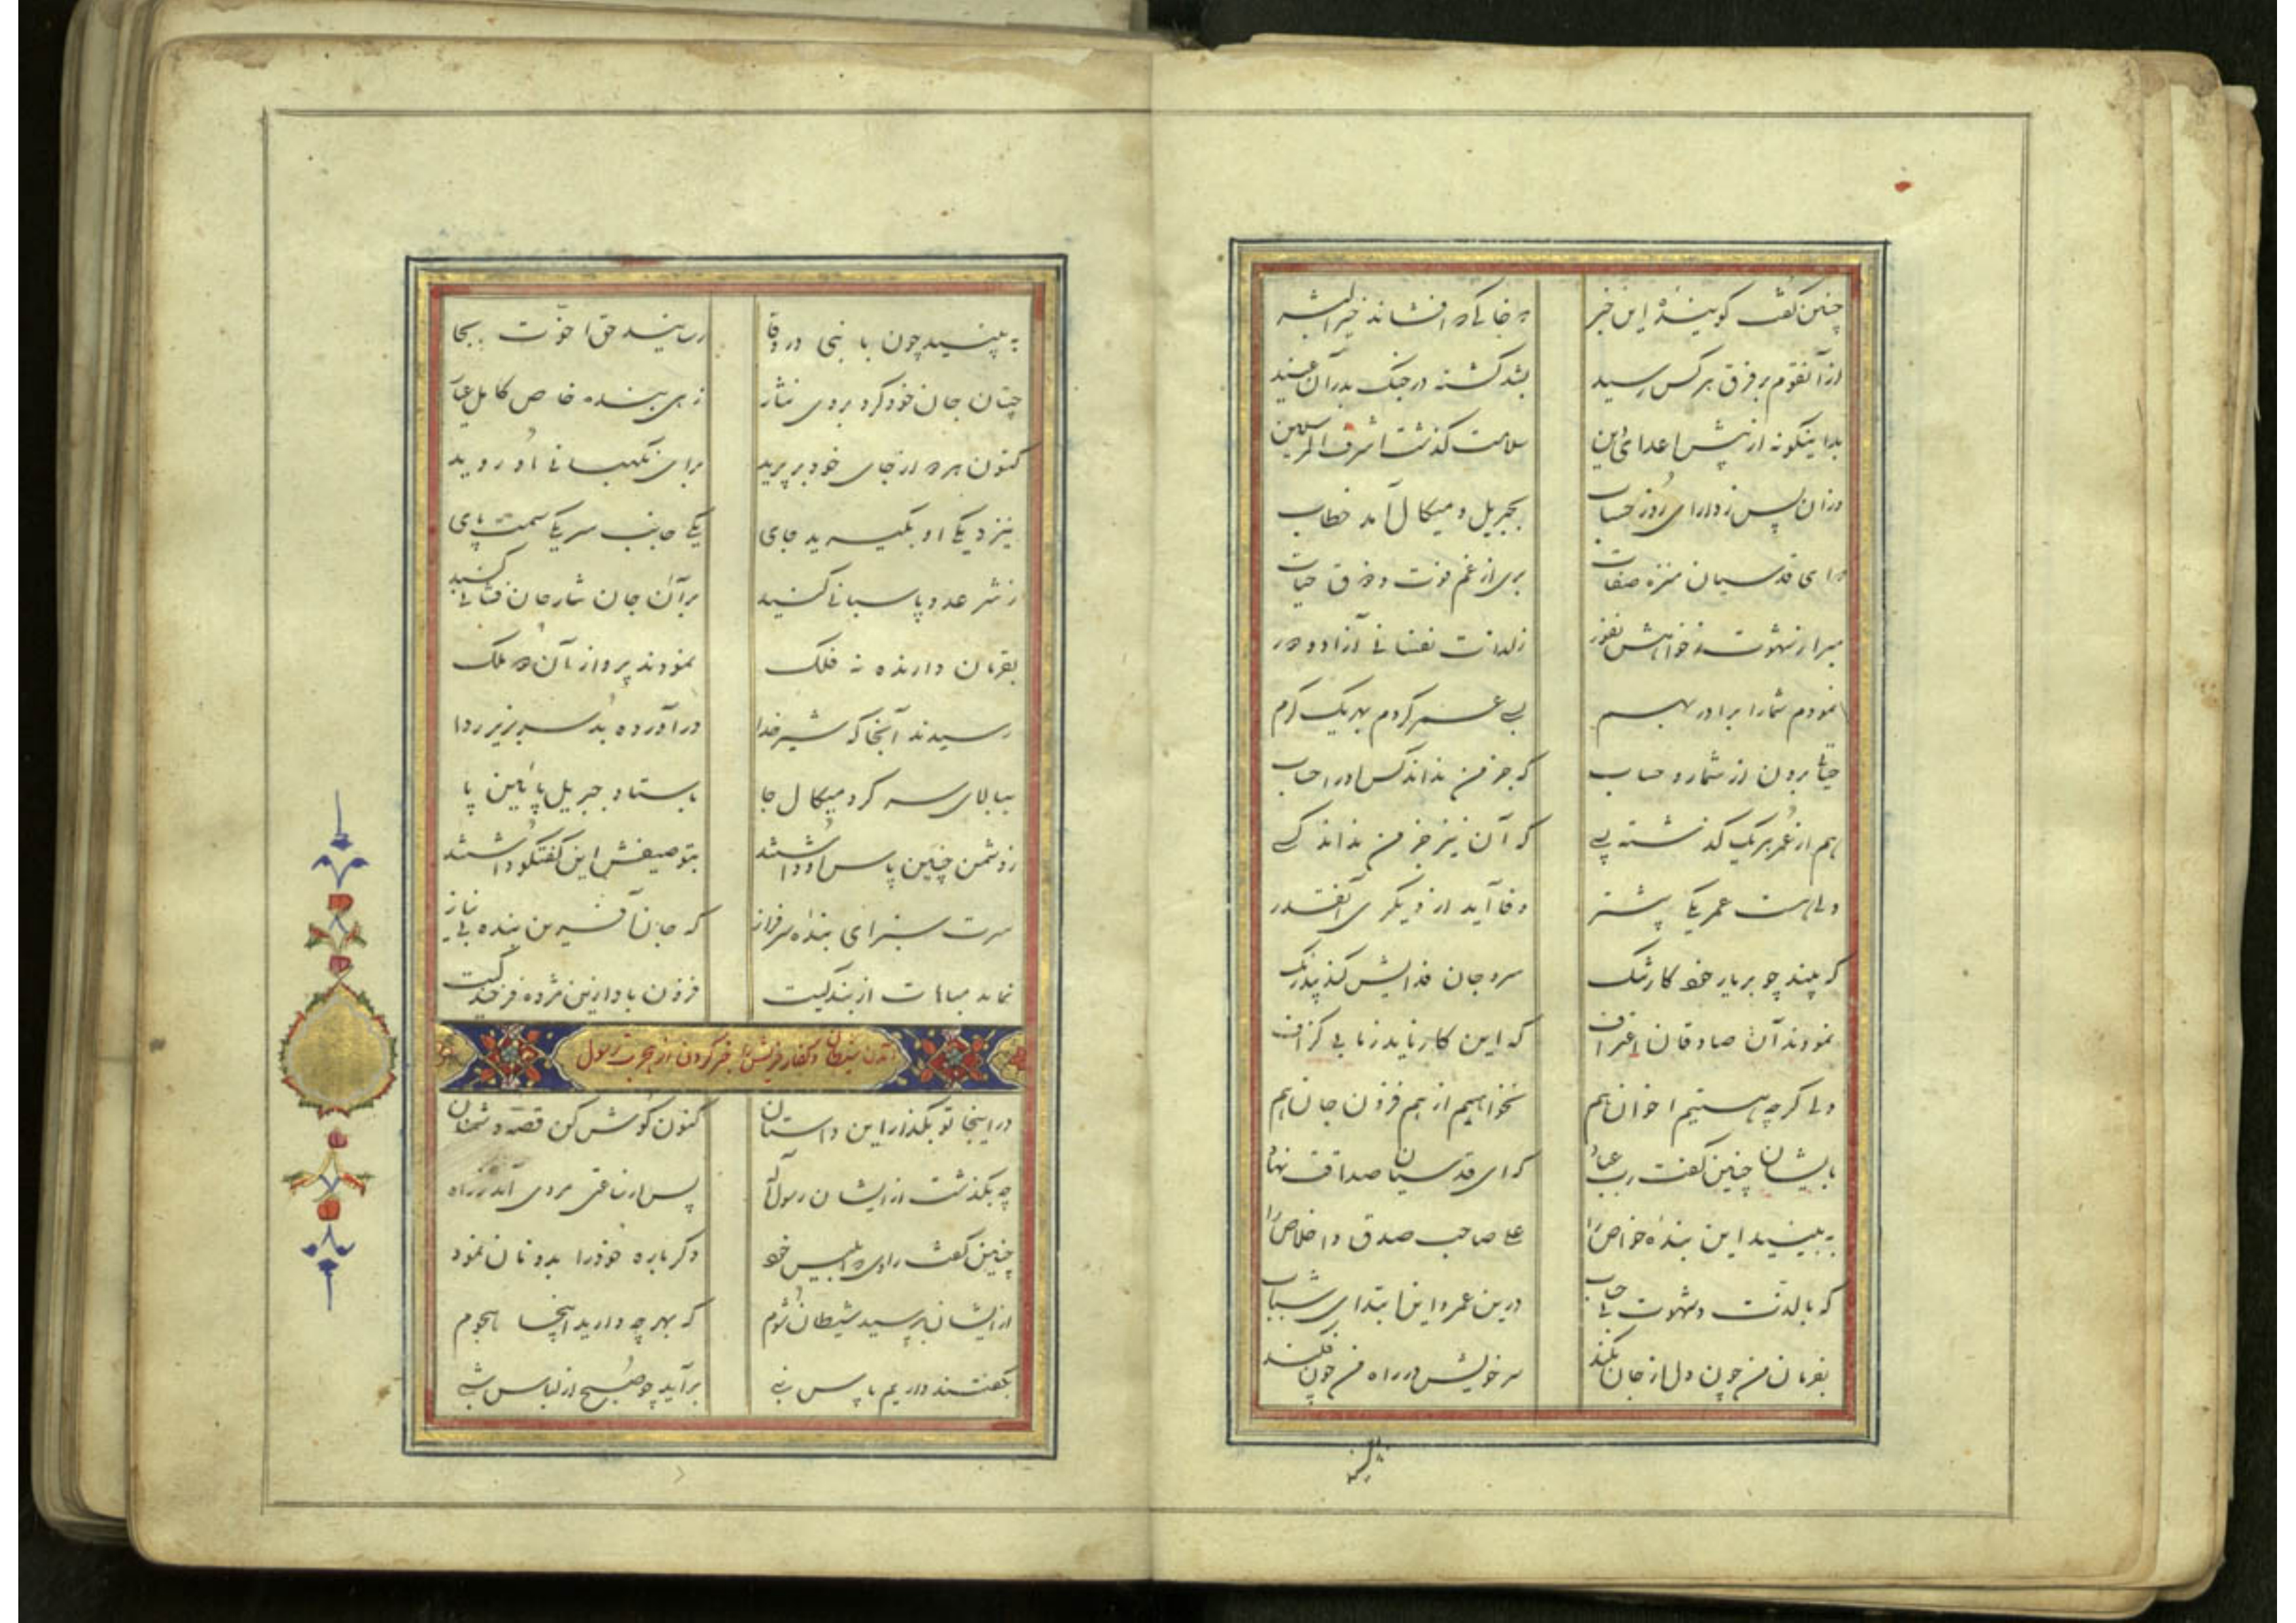 چنین گفت گوینده این خبر که خاکی که افشاند خیرالبشر
از آنقوم بر فرق هر کس رسید بشد کشته در جنک بدر آن عنید
بدا ینکونه از پیش اعدای دین سلامت گذشت اشرف المرسلین
وزان پس ز دارای روز حساب بجبریل و میکال آمد خطاب
که ای قدسیان منزه صفات بری از غم فوت و ذوق حیات
مبرا ز شهوت ز خواهش نفور ز لذات نفسانی آزاد و دور
نمودم شما را برادر بهم بسی عمر کردم بهر یک کرم
حیاتی برون از شمار و حساب که جز من نداند کس او را حساب
هم از عمر هر یک گذشته بسی که آن نیز جز من نداند کسی
ولی هست عمر یکی پیشتر وفا آید از دیگری آنقدر
که بیند چو بر یار خود کار تنک سر و جان فدایش کند بیدرنک
نمودند آن صادقان اعتراف که این کار ناید ز ما بی گزاف
ولی گر چه هستیم اخوان هم نخواهیم از هم فزون جان هم
بایشان چنین گفت رب عباد که ای قدسیان صداقت نهاد
به بینید این بنده خواص را علی صاحب صدق و اخلاص را
که با لذت و شهوت بی حساب درین عمر و این ابتدای شباب
بفرمان من چون دل از جان بکند سر خویش در راه من چون فکند
به بینید چون با نبی در وفا رسانید حق اخوت بجا
چنان جان خود کرد بر وی نثار زهی بنده خاص کامل عیار
کنون هر دو از جای خود بر پرید برای نگهبانی او روید
بنزدیک او بگیرید جای یکی جانب سر یکی سمت پای
ز شر عدو پاسبانی کنید بر آن جان نثار جان فشانی کنید
بفرمان دارنده نه فلک نمودند پرواز آن دو ملک
رسیدند آنجا که شیر خدا در آورده بد سر بزیر ردا
ببالای سر کرد میکال جا باستاد جبریل پائین پا
ز دشمن چنین پاس او داشتند بتوصیفش این گفتگو داشتند
سرت سبز ای بنده سرفراز که جان آفرین بنده بی نیاز
نماید مباهات از بندگیت فزون باد ازین مژده فرخندگیت
آمدن شیطان و کفار قریش را خبر کردن از هجرت رسول
در اینجا تو بگذار این داستان کنون گوش کن قصه دشمنان
چه بگذشت از ایشان رسول اله پس از ساعتی مردی آمد ز راه
چنین گفت راوی که ابلیس خود دگر باره خود را بدونان نمود
از ایشان بپرسید شیطان شوم که بهر چه دارید اینجا هجوم
بگفتند داریم پاس نبی برآید چو صبح از لباس شبی